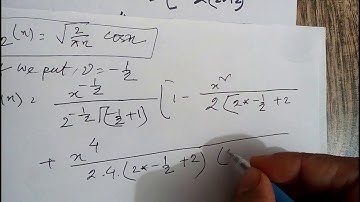 2(2n+2)
₂(x) = √(2/πx) cosx
we put, ν = -1/2
(x) = x^(-1/2) / 2^(-1/2) Γ(-1/2 + 1) [1 - x² / 2(2×-1/2 + 2
+ x⁴ / 2·4·(2×-1/2 + 2) (